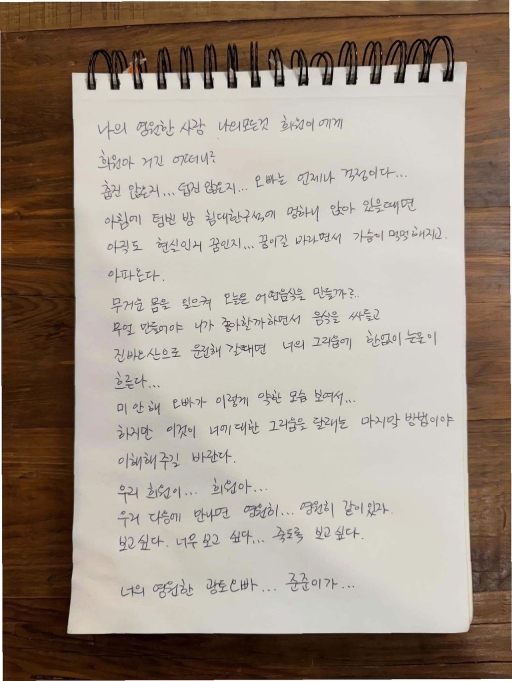 나의 영원한 사랑 나의모든것 희원이에게
희원아 거긴 어떠니?
춥진 않은지... 덥진 않은지... 오빠는 언제나 걱정이다...
아침에 텅빈 방 침대한구석에 멍하니 앉아 있을때면
아직도 현실인지 꿈인지... 꿈이길 바라면서 가슴이 먹먹해지고.
아파온다.
무거운 몸을 일으켜 오늘은 어떤음식을 만들까?..
무얼 만들어야 니가 좋아할까하면서 음식을 싸들고
진바탕산으로 운전해 갈때면 너의 그리움에 한없이 눈물이
흐른다...
미안해 오빠가 이렇게 약한 모습 보여서...
하지만 이것이 너에대한 그리움을 달래는 마지막 방법이야
이해해주길 바란다.
우리 희원이... 희원아...
우리 다음에 만나면 영원히... 영원히 같이있자.
보고싶다. 너무 보고 싶다... 죽도록 보고싶다.
너의 영원한 광토오빠... 준준이가...